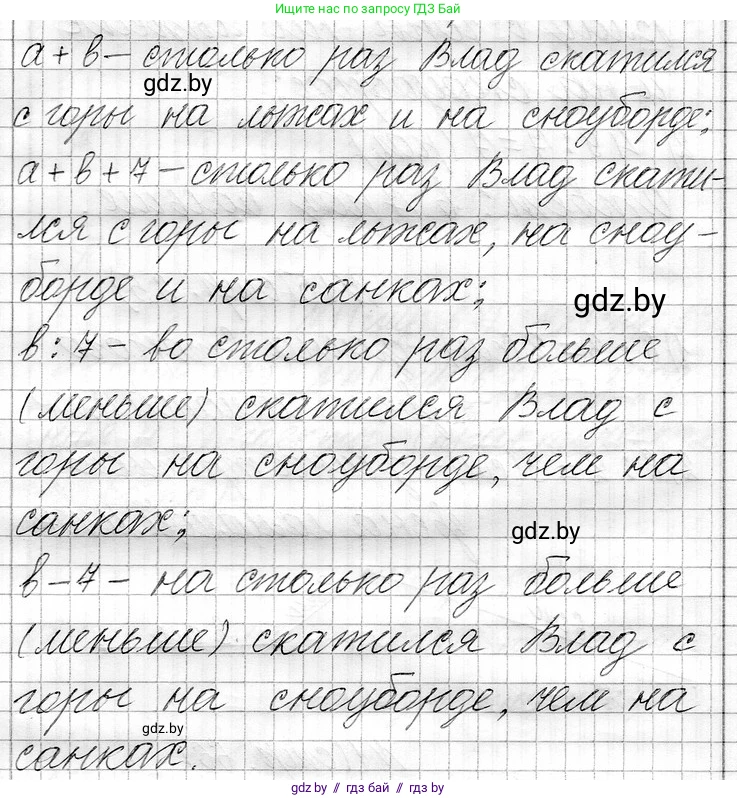 Ищите нас по запросу ГДЗ Бай
a + b – столько раз Влад скатился
gdz.by
с горы на лыжах и на сноуборде;
a + b + 7 – столько раз Влад скати-
лся с горы на лыжах, на сноу-
борде и на санках;
gdz.by
b : 7 – во столько раз больше
(меньше) скатился Влад с
горы на сноуборде, чем на
санках;
gdz.by
b – 7 – на столько раз больше
(меньше) скатился Влад с
горы на сноуборде, чем на
gdz.by
санках.
gdz by // гдз бай // гдз by